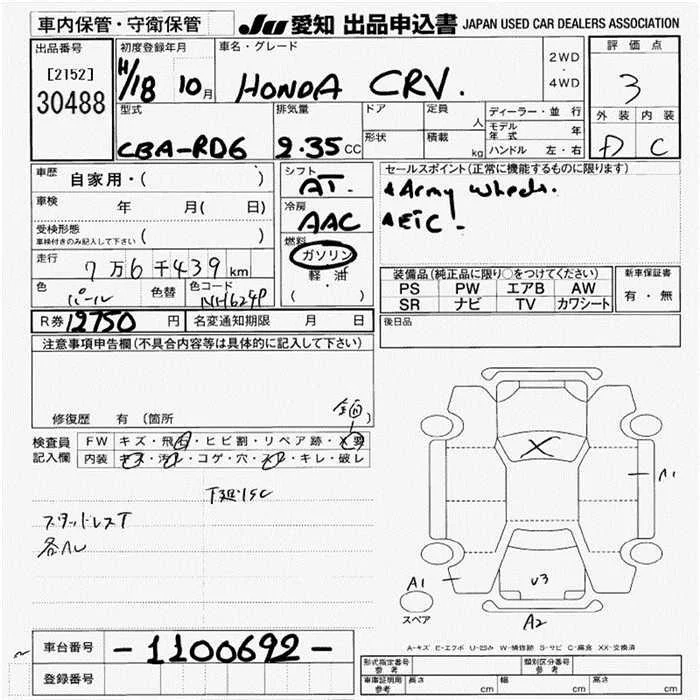 車内保管・守衛保管
JU 愛知 出品申込書 JAPAN USED CAR DEALERS ASSOCIATION
出品番号
[2152]
30488
初度登録年月
H/18 10月
車名・グレード
HONDA CRV.
2WD
・
4WD
評価点
3
外装 内装
D C
型式
CBA-RD6
排気量
2.35 CC
ドア
形状
定員 人
積載 kg
ディーラー・並行
モデル年式 年
ハンドル 左・右
車歴 自家用・( )
車検 年 月( 日)
受検形態
車検付きのみ記入して下さい ( )
走行 7万6千439km
色 パール 色替 色コード NH624P
シフト
AT.
冷房
AAC
燃料
ガソリン
・
軽油
( ・ )
セールスポイント(正常に機能するものに限ります)
Army wheels.
ETC!
装備品(純正品に限り○をつけてください)
PS PW エアB AW
SR ナビ TV カワシート
新車保証書
有・無
R券 12750 円 名変通知期限 月 日
後日品
注意事項申告欄(不具合内容等は具体的に記入して下さい)
修復歴 有 (箇所 )
検査員
記入欄
FW キズ・飛石・ヒビ割・リペア跡・X要
内装 キズ・汚れ・コゲ・穴・スレ・キレ・破レ
スタッドレスT
各ヘルレ
X
A1
A1
U3
A2
スペア
A-キズ E-エクボ U-凹み W-補修跡 S-サビ C-腐食 XX-交換済
車台番号 -1100692-
登録番号
形式指定番号
参考
類別区分番号
参考
車庫証明用
参考
長さ cm 幅 cm 高さ cm